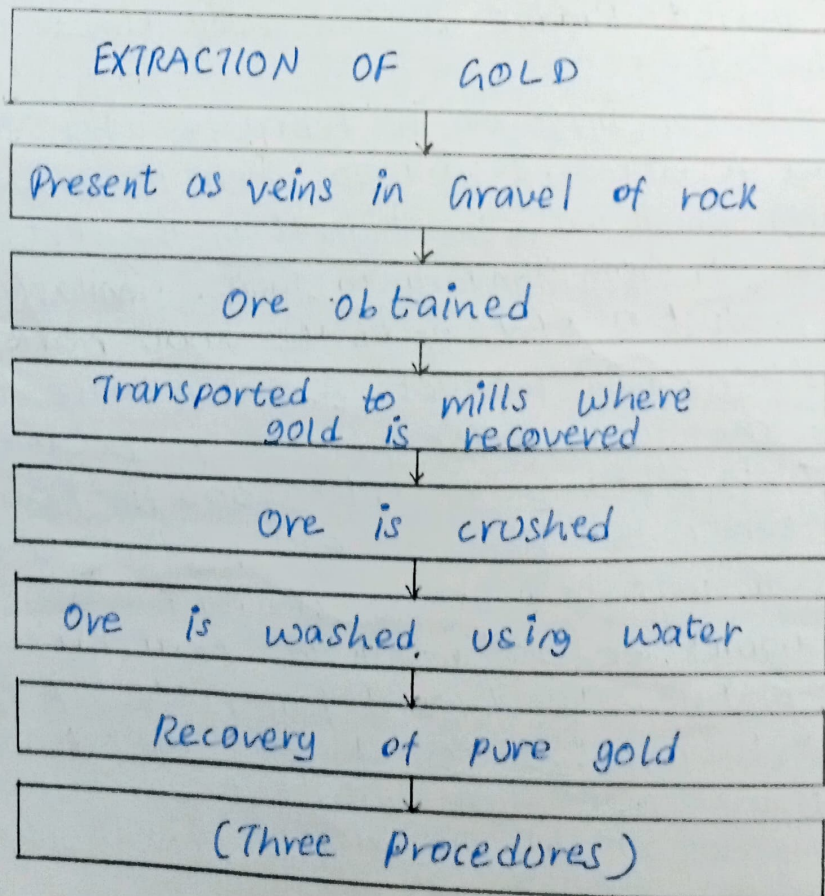 EXTRACTION OF GOLD
Present as veins in Gravel of rock
Ore obtained
Transported to mills where
gold is recovered
Ore is crushed
Ore is washed using water
Recovery of pure gold
(Three Procedures)